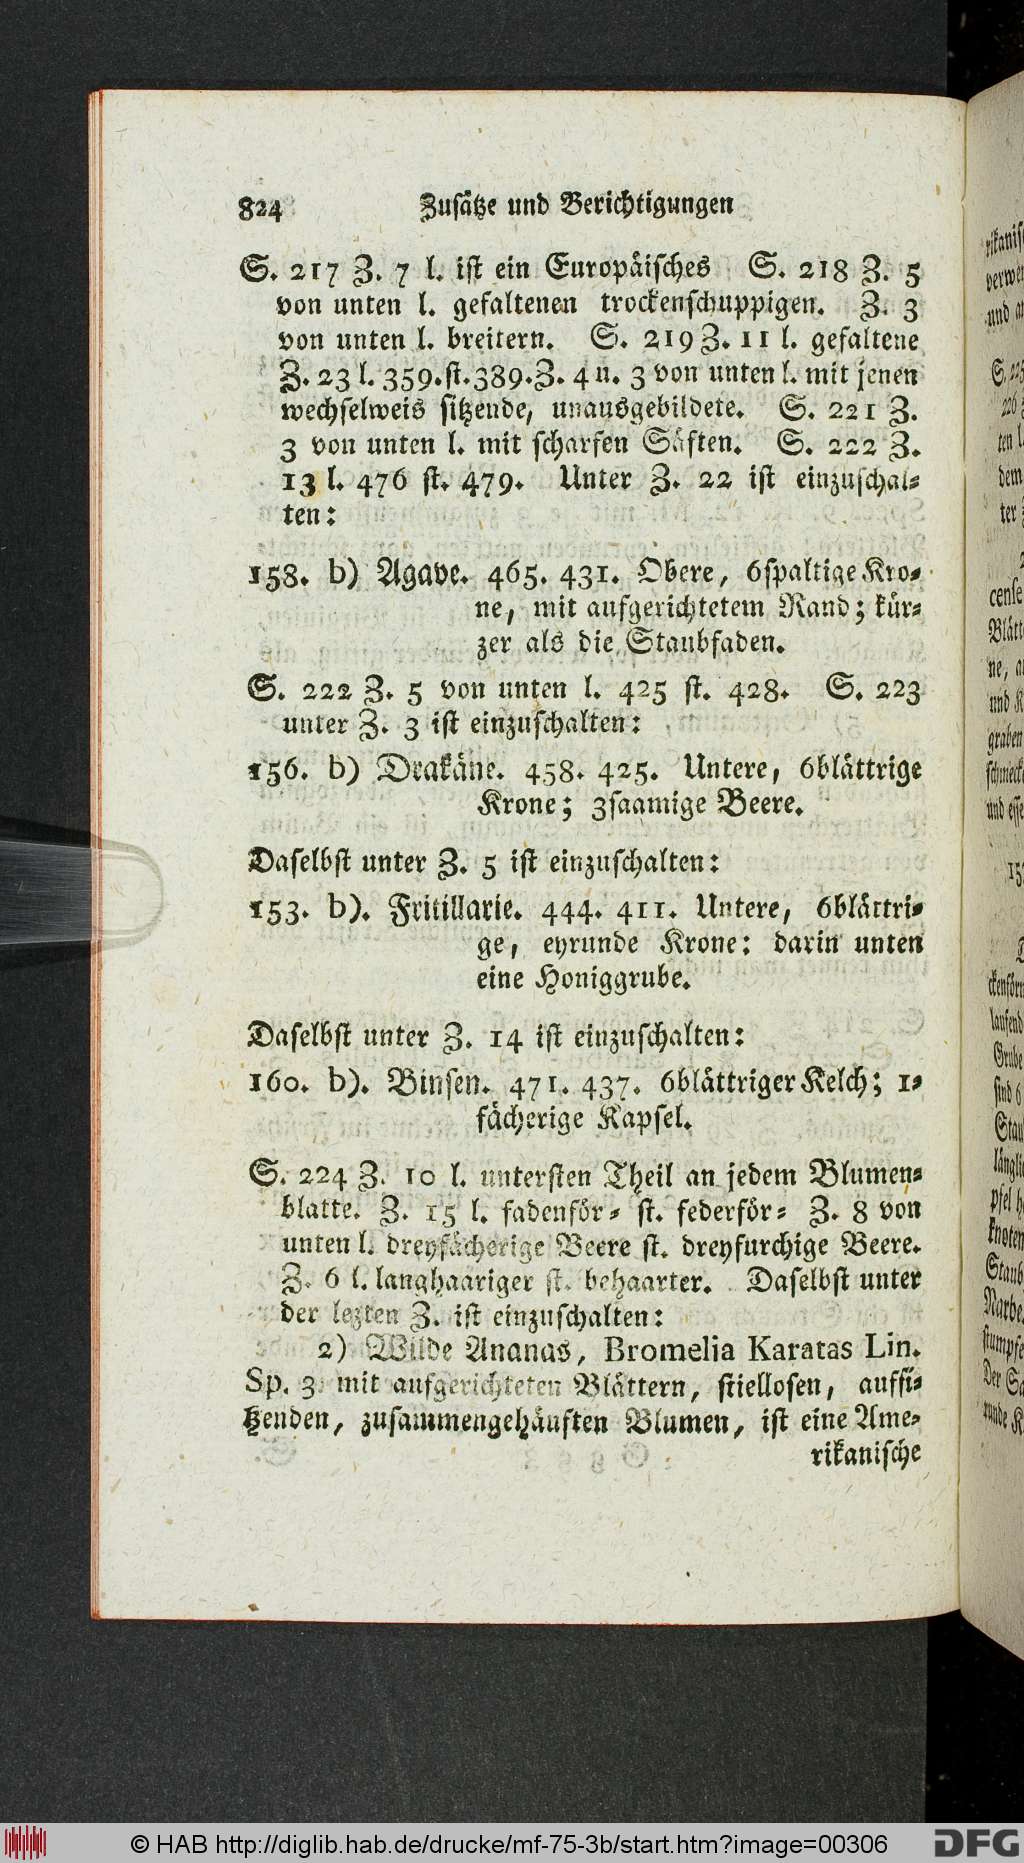 824 Zusätze und Berichtigungen
S. 217 Z. 7 l. ist ein Europäisches S. 218 Z. 5
von unten l. gefaltenen trockenschuppigen. Z. 3
von unten l. breitern. S. 219 Z. 11 l. gefaltene
Z. 23 l. 359. st. 389. Z. 4 u. 3 von unten l. mit jenen
wechselweis sitzende, unausgebildete. S. 221 Z.
3 von unten l. mit scharfen Säften. S. 222 Z.
13 l. 476 st. 479. Unter Z. 22 ist einzuschal-
ten:
158. b) Agave. 465. 431. Obere, 6spaltige Kro-
ne, mit aufgerichtetem Rand; kür-
zer als die Staubfaden.
S. 222 Z. 5 von unten l. 425 st. 428. S. 223
unter Z. 3 ist einzuschalten:
156. b) Drakäne. 458. 425. Untere, 6blättrige
Krone; 3saamige Beere.
Daselbst unter Z. 5 ist einzuschalten:
153. b). Fritillarie. 444. 411. Untere, 6blättri-
ge, eyrunde Krone: darin unten
eine Honiggrube.
Daselbst unter Z. 14 ist einzuschalten:
160. b). Binsen. 471. 437. 6blättriger Kelch; 1-
fächerige Kapsel.
S. 224 Z. 10 l. untersten Theil an jedem Blumen-
blatte. Z. 15 l. fadenför- st. federför- Z. 8 von
unten l. dreyfächerige Beere st. dreyfurchige Beere.
Z. 6 l. langhaariger st. behaarter. Daselbst unter
der lezten Z. ist einzuschalten:
2) Wilde Ananas, Bromelia Karatas Lin.
Sp. 3 mit aufgerichteten Blättern, stiellosen, auffi-
tzenden, zusammengehäuften Blumen, ist eine Ame-
rikanische
© HAB http://diglib.hab.de/drucke/mf-75-3b/start.htm?image=00306
DFG